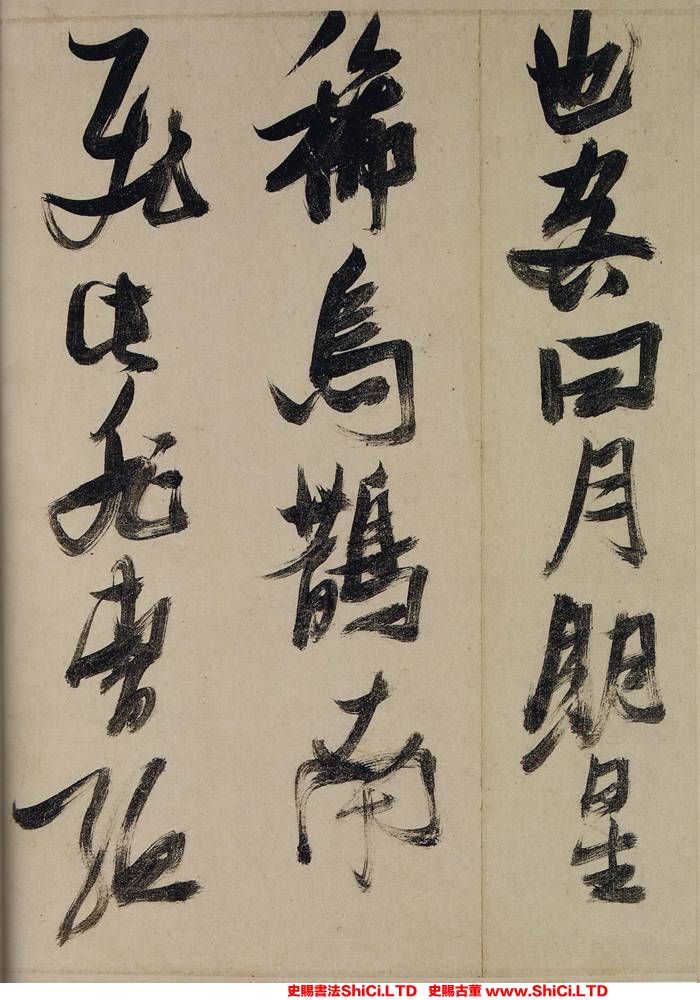 也客曰月明星
稀烏鵲南
飛此非曹孟
史賜書法ShiCi.LTD 史賜古董 www.ShiCi.LTD